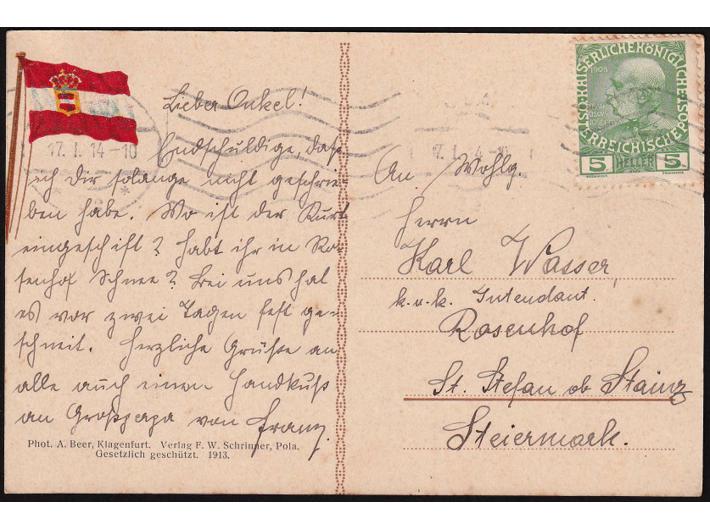 Lieber Onkel!
Endschuldige, daß
ich dir solange nicht geschrie-
ben habe. Wo ist der Kurt
eingeschift? habt ihr in Ro-
senhof Schnee? bei uns hat
es vor zwei Tagen fest ge-
schneit. Herzliche Grüße an
alle auch einen Handkuß
an Großpapa von Franz.
Phot. A. Beer, Klagenfurt. Verlag F. W. Schrinner, Pola.
Gesetzlich geschützt. 1913.
17. I. 14-10
17. I. 14-10
KAISERLICHE KÖNIGLICHE
ÖSTERREICHISCHE POST
5 HELLER 5
An Wohlg.
Herrn
Karl Wasser,
k. u. k. Intendant.
Rosenhof
St. Stefan ob Stainz
Steiermark.